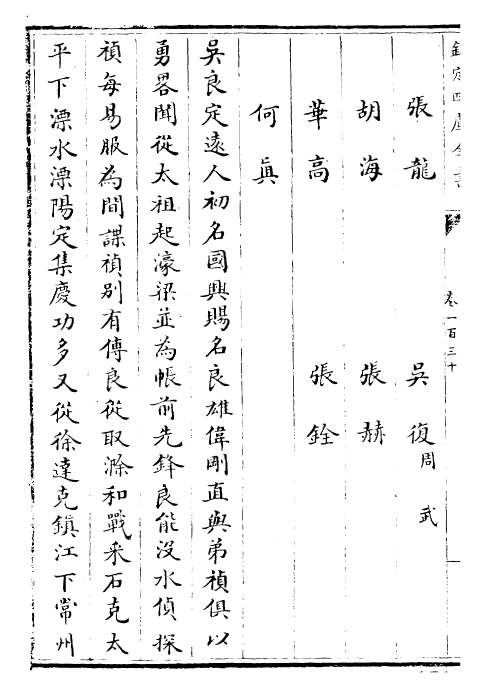 欽定四庫全書
卷一百三十
張龍 吳復周武
胡海 張赫
華高 張銓
何眞
吳良定遠人初名國興賜名良雄偉剛直與弟禎俱以
勇畧聞從太祖起濠梁並為帳前先鋒良能没水偵探
禎每易服為間諜禎别有傳良從取滁和戰采石克太
平下溧水溧陽定集慶功多又從徐達克鎮江下常州